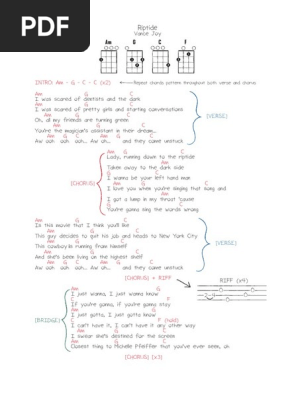 PDF
Riptide
Vance Joy
Am G C F
INTRO: Am - G - C - C (x2) Repeat chords pattern throughout both verse and chorus
Am G C
I was scared of dentists and the dark
Am G C
I was scared of pretty girls and starting conversations
Am G C
Oh, all my friends are turning green
Am G C
You're the magician's assistant in their dream...
Am G C Am G C
Aw ooh ooh ooh... Aw oh... and they come unstuck
(VERSE)
Am G C
Lady, running down to the riptide
Am G
Taken away to the dark side
C
I wanna be your left hand man
Am G C
I love you when you're singing that song and
Am G
I got a lump in my throat 'cause
C
You're gonna sing the words wrong
(CHORUS)
Am G C
In this movie that I think you'll like
Am G C
This guy decides to quit his job and heads to New York City
Am G C
This cowboy's running from himself
Am G C
And she's been living on the highest shelf
Am G C Am G C
Aw ooh ooh ooh... Aw oh... and they come unstuck
(VERSE)
(CHORUS) + RIFF
RIFF (x4)
Am G
I just wanna, I just wanna know
C F
If you're gonna, if you're gonna stay
Am G
I just gotta, I just gotta know
C F (hold)
I can't have it, I can't have it any other way
Am G C
I swear she's destined for the screen
Am G C
Closest thing to Michelle Pfeiffer that you've ever seen, oh
(BRIDGE)
(CHORUS) (x3)